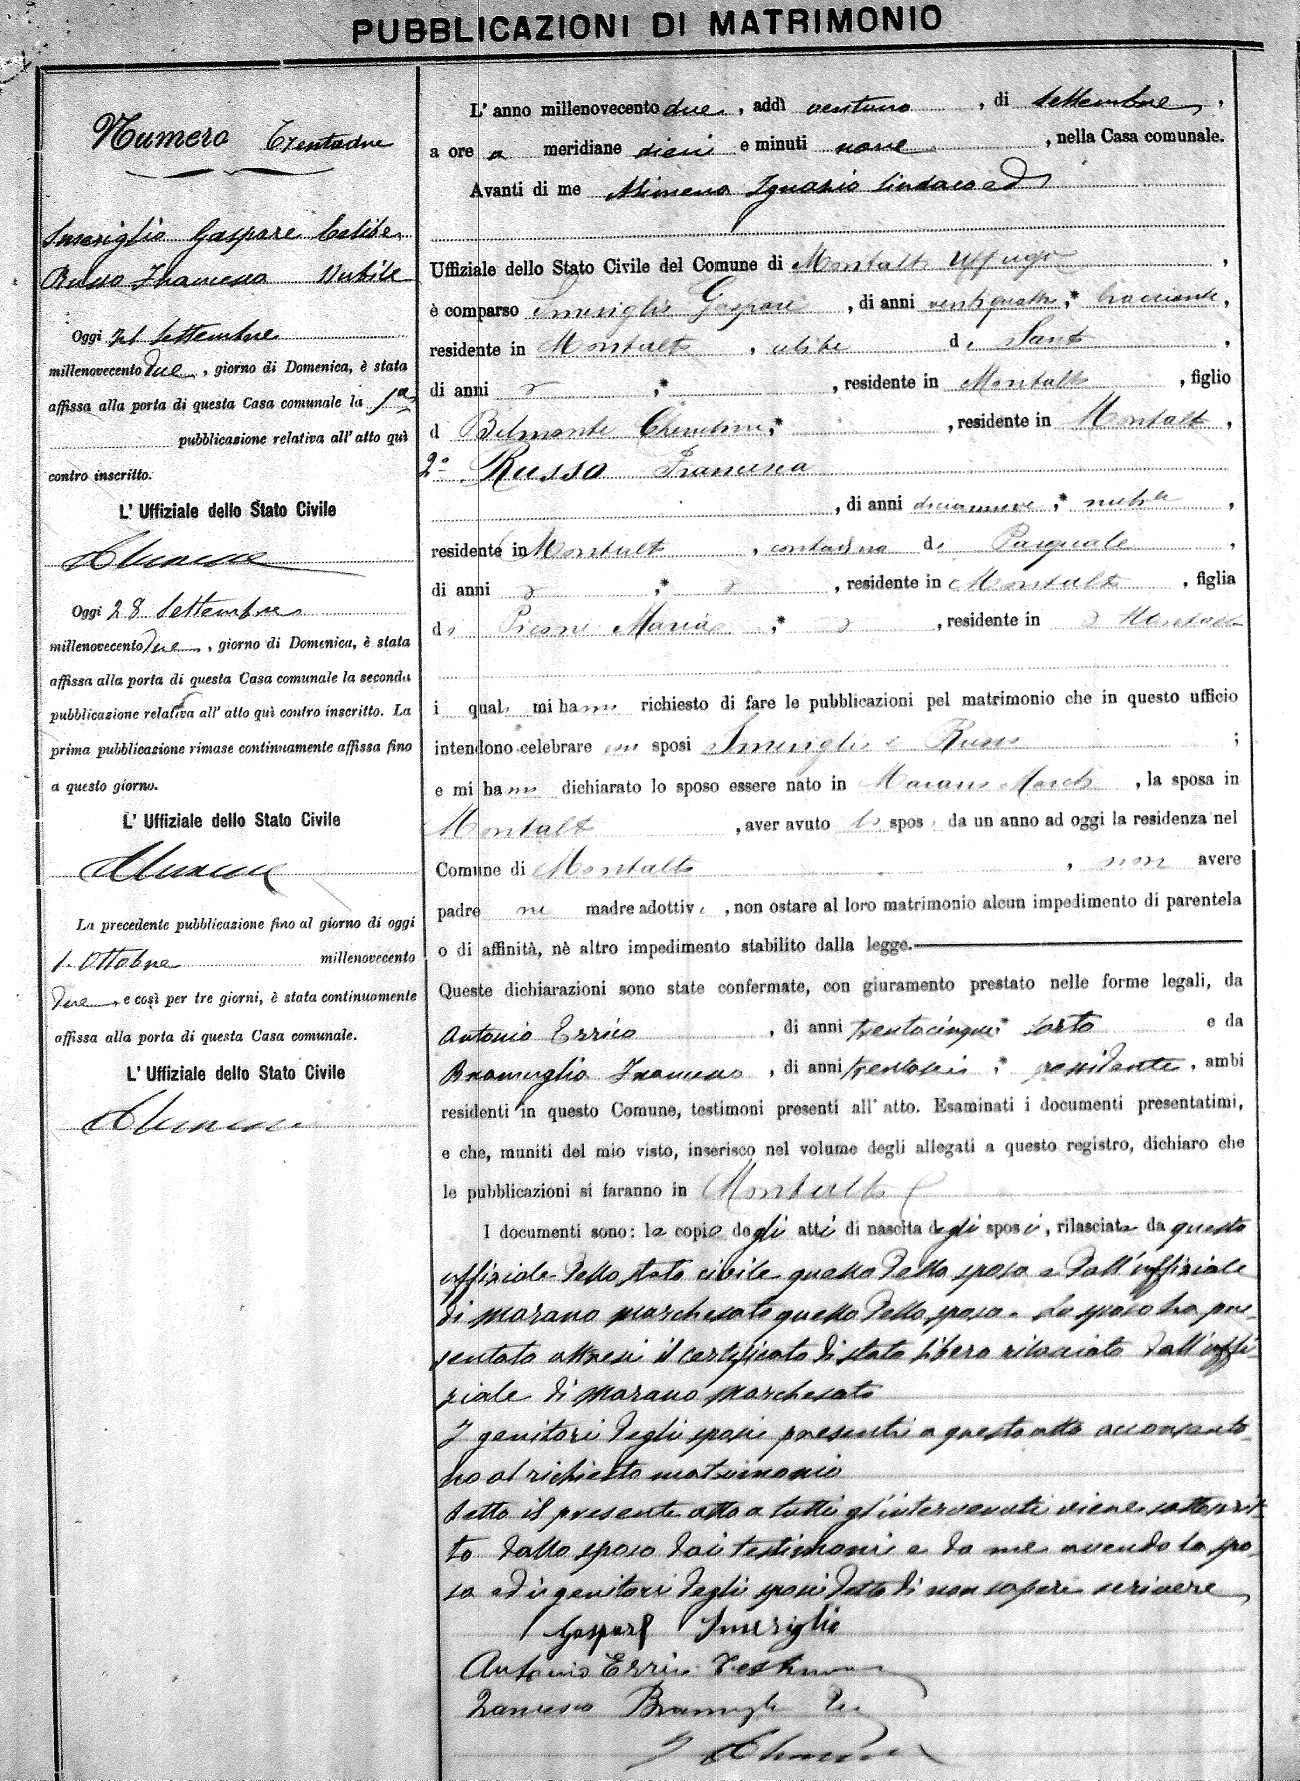 PUBBLICAZIONI DI MATRIMONIO
Numero Trentadue
Smeriglio Gaspare Celibe
Russo Francesca Nubile
Oggi 21 Settembre
millenovecento due, giorno di Domenica, è stata
affissa alla porta di questa Casa comunale la 1a
pubblicazione relativa all'atto quì
contro inscritto.
L'Uffiziale dello Stato Civile
Oggi 28 Settembre
millenovecento due, giorno di Domenica, è stata
affissa alla porta di questa Casa comunale la seconda
pubblicazione relativa all'atto quì contro inscritto. La
prima pubblicazione rimase continuamente affissa fino
a questo giorno.
L'Uffiziale dello Stato Civile
La precedente pubblicazione fino al giorno di oggi
1. Ottobre millenovecento
due, e così per tre giorni, è stata continuamente
affissa alla porta di questa Casa comunale.
L'Uffiziale dello Stato Civile
L'anno millenovecento due, addì ventuno, di Settembre,
a ore a meridiane dieci e minuti nove, nella Casa comunale.
Avanti di me Ignazio Sindaco ed
Uffiziale dello Stato Civile del Comune di Montalto Uffugo,
è comparso Smeriglio Gaspare, di anni ventiquattro,* bracciante,
residente in Montalto, celibe di Santo,
di anni ,* , residente in Montalto, figlio
d Belmonte Cherubina,* , residente in Montalto,
2o Russo Francesca
, di anni diciannove,* nubile,
residente in Montalto, contadina di Pasquale,
di anni ,* , residente in Montalto, figlia
di Maria,* , residente in Montalto
i quali mi hanno richiesto di fare le pubblicazioni pel matrimonio che in questo ufficio
intendono celebrare essi sposi Smeriglio e Russo ;
e mi hanno dichiarato lo sposo essere nato in Marano March, la sposa in
Montalto, aver avuto lo sposi da un anno ad oggi la residenza nel
Comune di Montalto, non avere
padre ne madre adottivi, non ostare al loro matrimonio alcun impedimento di parentela
o di affinità, nè altro impedimento stabilito dalla legge.
Queste dichiarazioni sono state confermate, con giuramento prestato nelle forme legali, da
Antonio Errico, di anni trentacinque* sarto e da
Bramuglio Francesco, di anni trentasei,* possidente, ambi
residenti in questo Comune, testimoni presenti all'atto. Esaminati i documenti presentatimi,
e che, muniti del mio visto, inserisco nel volume degli allegati a questo registro, dichiaro che
le pubblicazioni si faranno in Montalto
I documenti sono: le copie degli atti di nascita degli sposi, rilasciate da questo
uffiziale dello stato civile quello della sposa e dall'uffiziale
di Marano Marchesato quello dello sposo. Lo sposo ha pre-
sentato altresi il certificato di stato libero rilasciato dall'uffi-
ziale di Marano Marchesato
I genitori degli sposi presenti a questo atto acconsento-
no al richiesto matrimonio
Letto il presente atto a tutti gl'intervenuti viene sottoscrit-
to dallo sposo dai testimoni e da me avendo la spo-
sa ed i genitori degli sposi detto di non sapere scrivere
Gaspare Smeriglio
Antonio Errico Testimone
Francesco Bramuglio